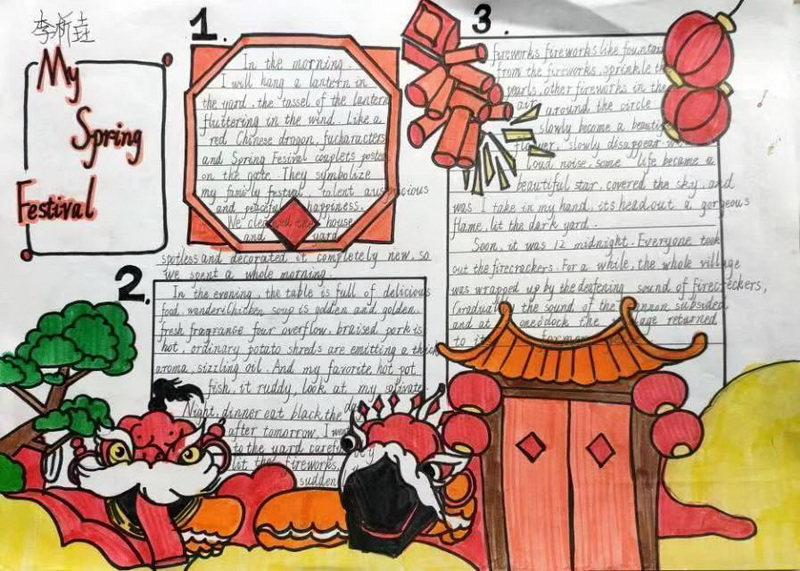 李昕垚
My
Spring
Festival
1.
In the morning
I will hang a lantern in
the yard, the tassel of the lantern
fluttering in the wind. Like a
red Chinese dragon, fucharacters
and Spring Fesival couplets posted
on the gate. They symbolize
my family festival, talent auspicious
and peaceful happiness.
We cleaned the house
and yard
spotless and decorated it completely new, so
we spent a whole morning.
2.
In the evening, the table is full of delicious
food, wander Chicken soup is golden and golden,
fresh fragrance four overflow, braised pork is
hot, ordinary potato shreds are emitting a thick
aroma, sizzling oil. And my favorite hot pot
fish, it ruddy, look at my salivate.
Night, dinner eat black the day
after tomorrow, I went
to the yard carefully
let the fireworks,
sudden
3.
fireworks, fireworks like fountain
from the fireworks, sprinkle the
pearls, other fireworks in the
air around the circle
slowly become a beautiful
flower, slowly disappear
loud noise, some life became a
beautiful star, covered the sky, and
was I take in my hand, its head out a gorgeous
flame, lit the dark yard.
Soon, it was 12 midnight. Everyone took
out the firecrackers. For a while, the whole village
was wrapped up by the deafening sound of firecreckers,
Gradually the sound of the cannon subsided
and at one o'clock the village returned
to its